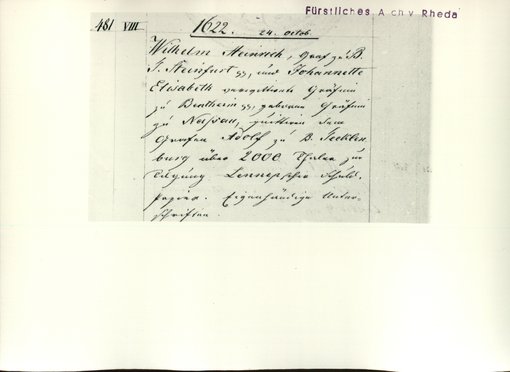 Fürstliches Archiv Rheda
481 VIII. 1622. 24. Octob.
Wilhelm Heinrich, Graf zu B.
T. Steinfurt pp, und Johannette
Elisabeth verwittwete Gräfinn
zu Bentheim pp, geborne Gräfinn
zu Nassau, quittiren dem
Grafen Adolf zu B. Tecklen-
burg über 2000 Thaler zur
Tilgung Lennepscher Schuld-
papiere. Eigenhändige Unter-
schriften.